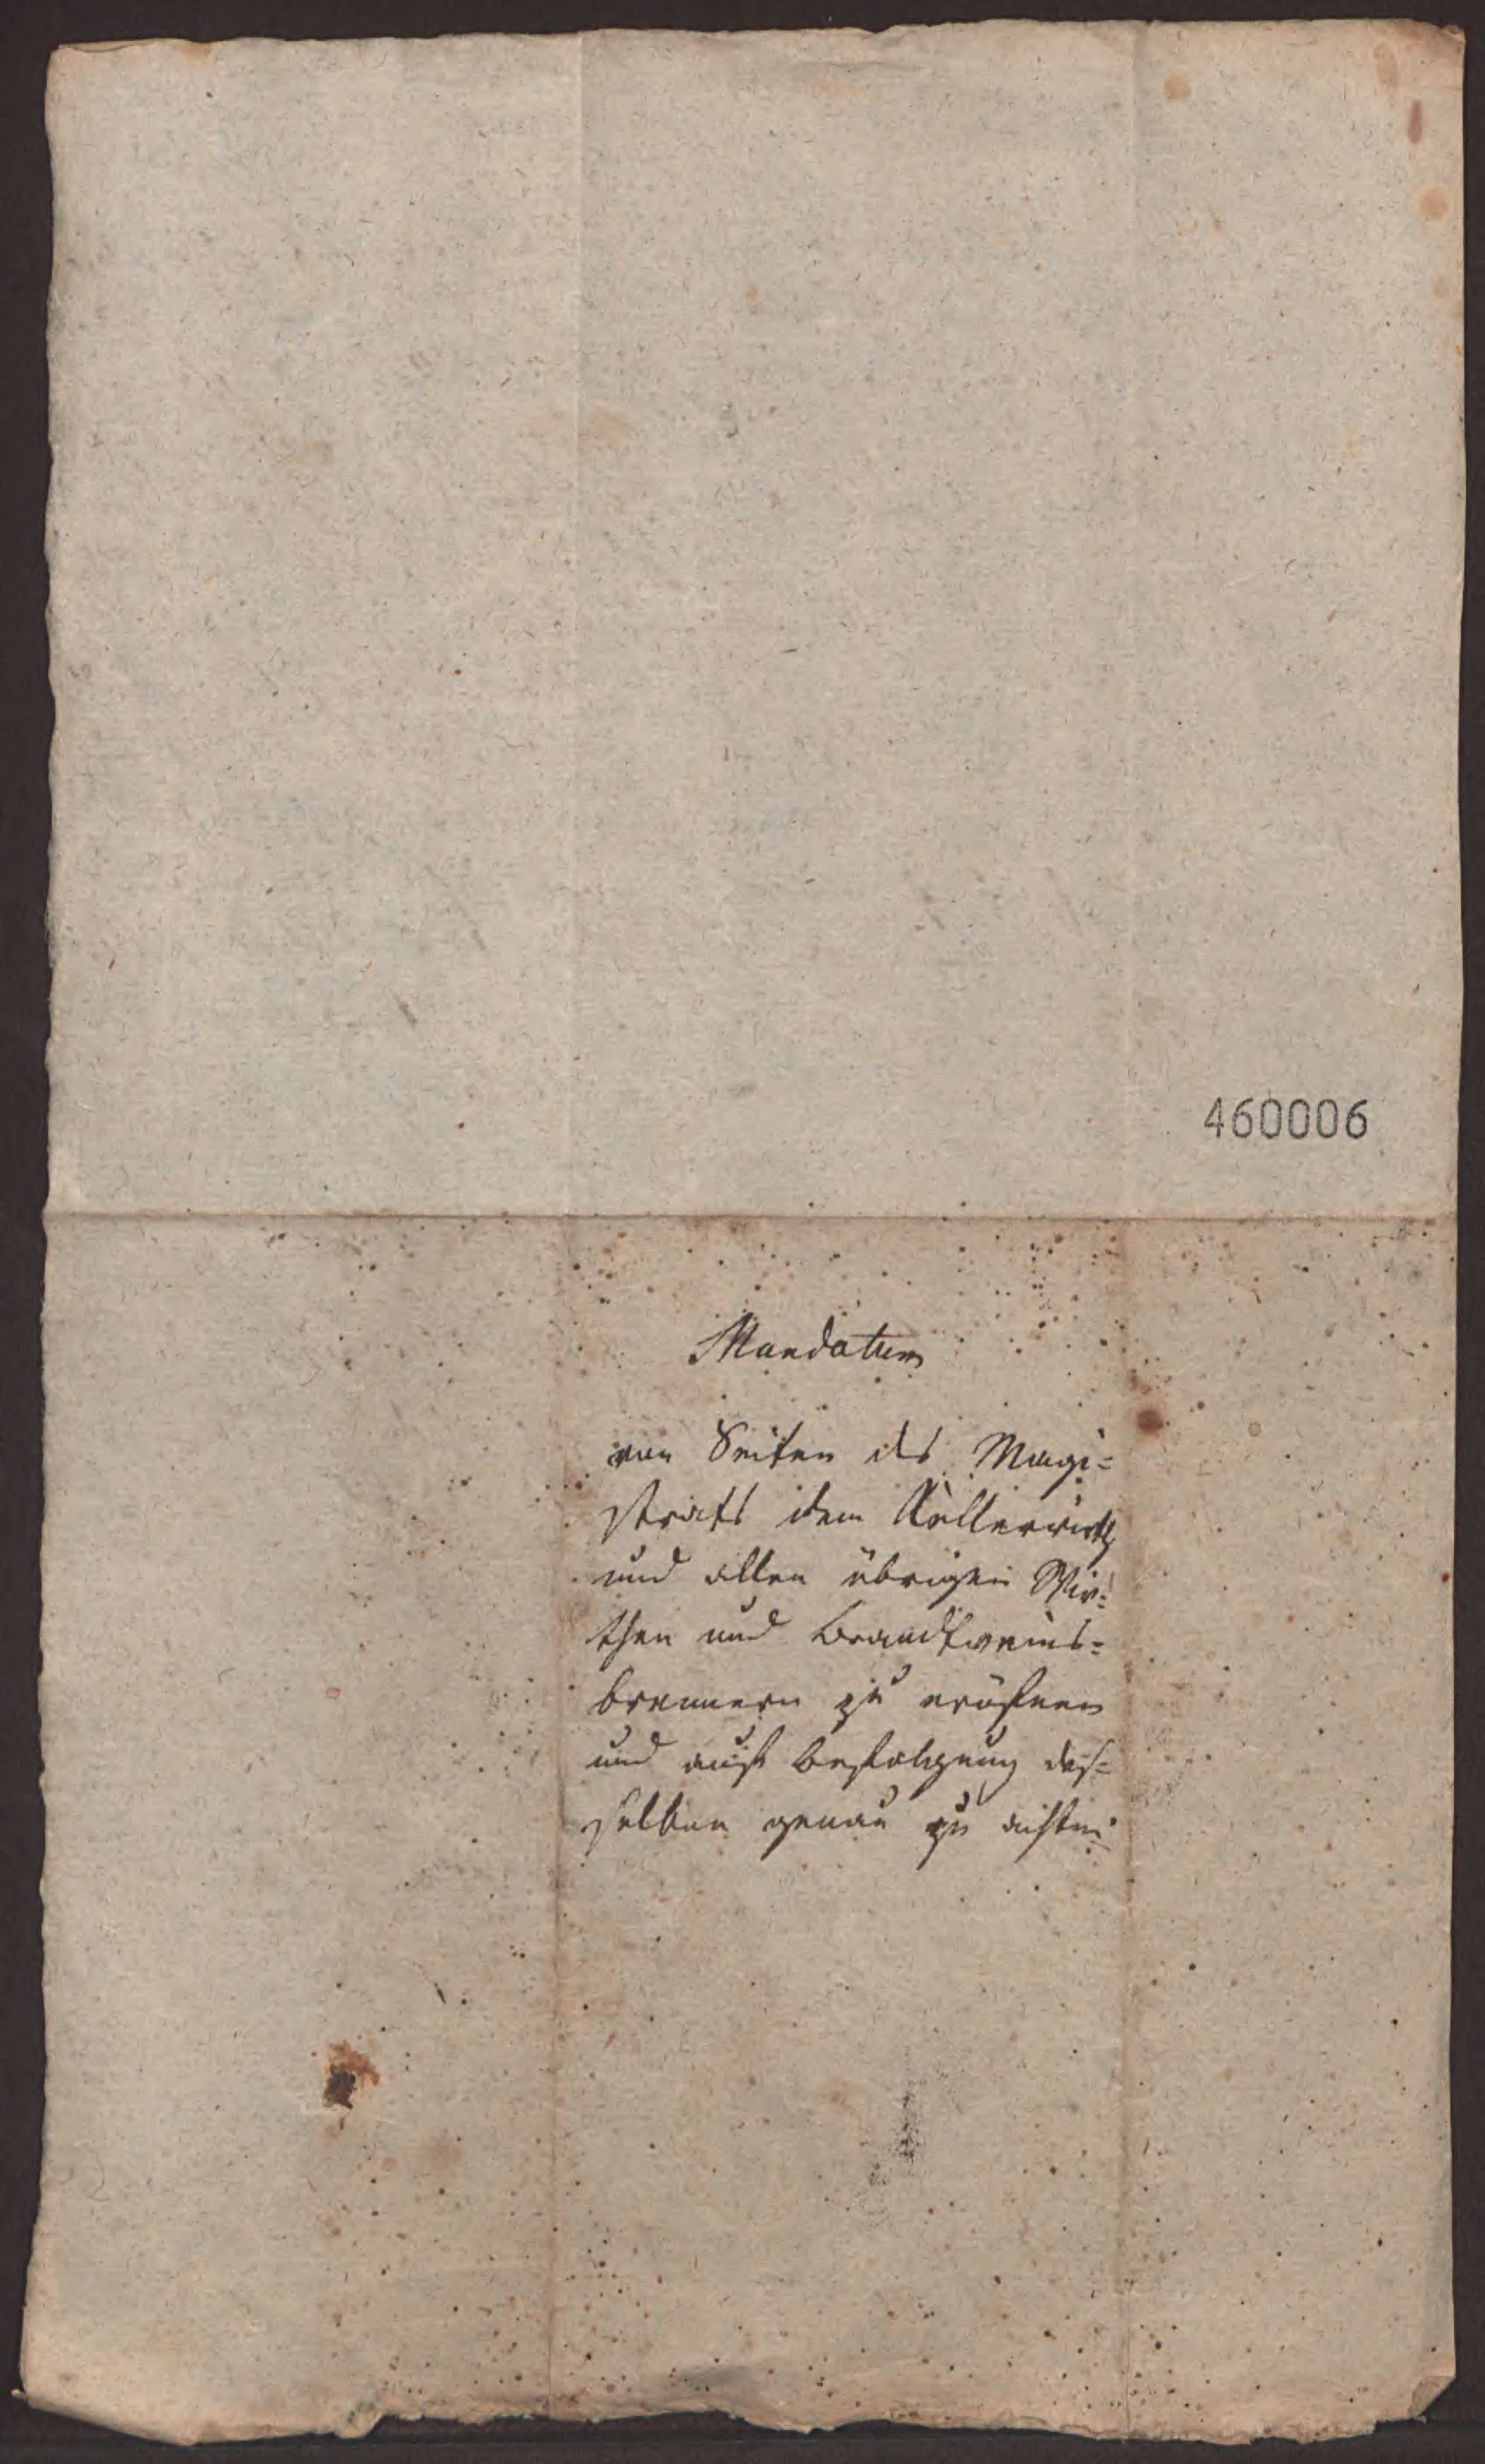 460006
Mandatum
von Seiten des Magi=
strats dem Kellerwirth
und allen übrigen Wir=
then und Brandtweins=
brennern zu eröfnen
und auf Befolgung des=
selben genau zu achten